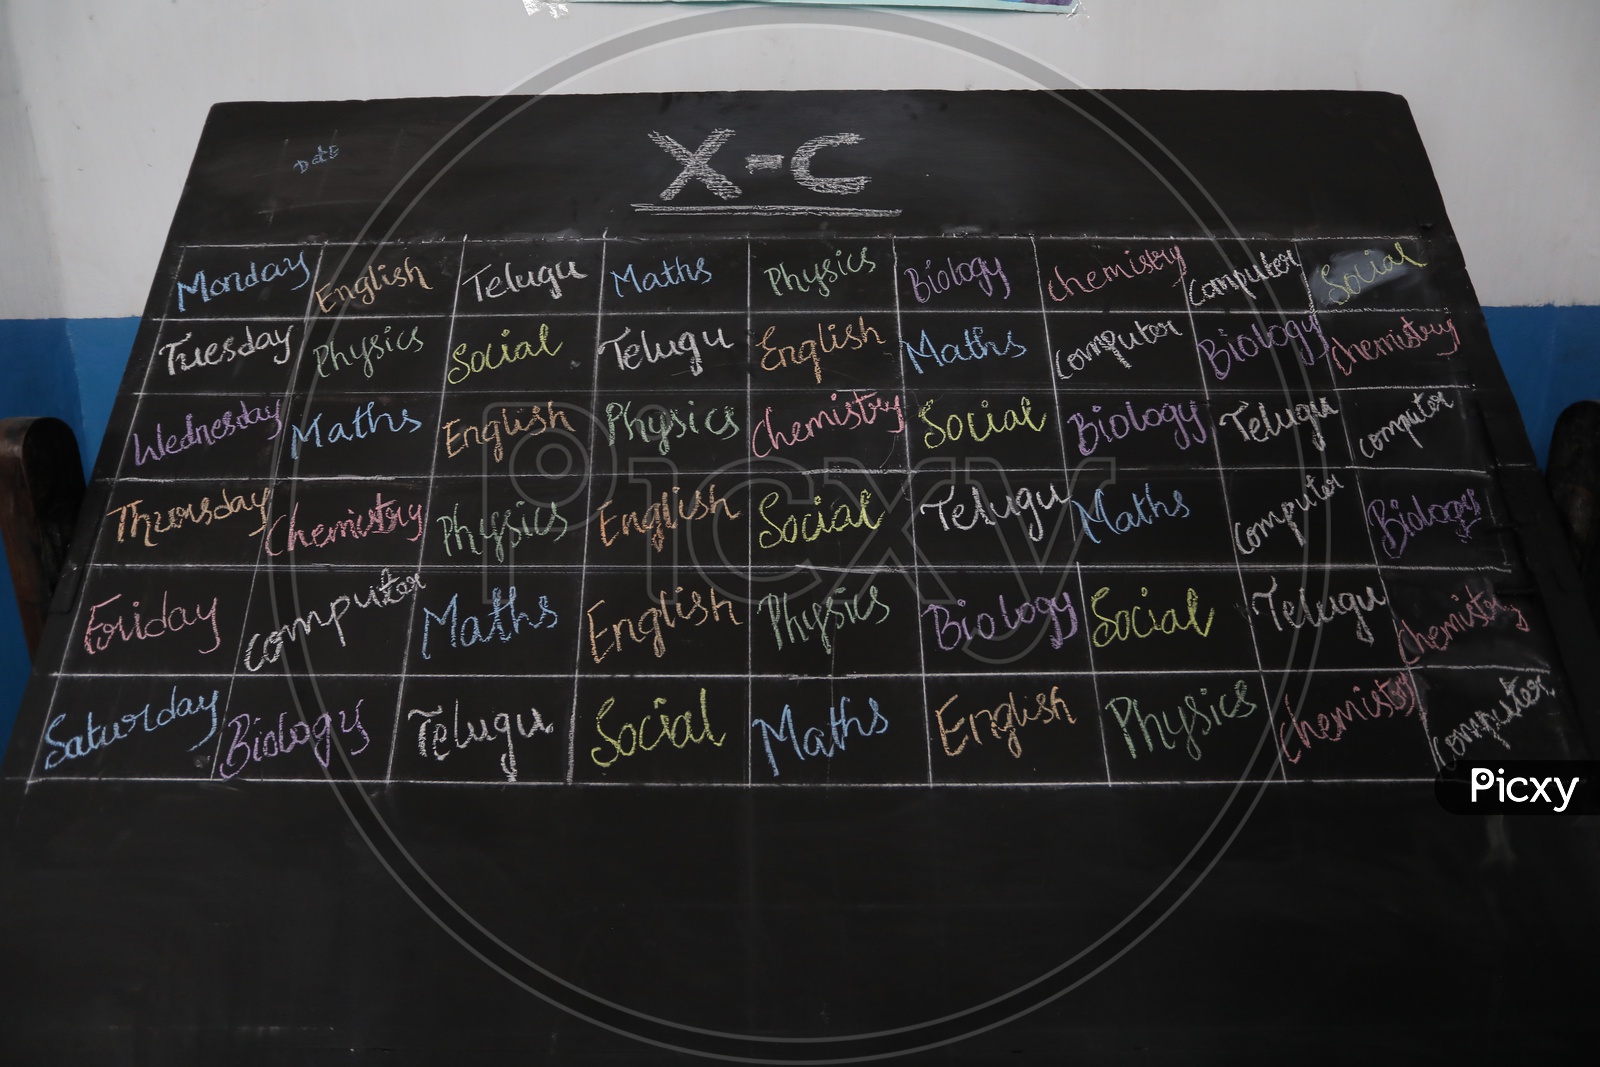 Date
X-C
Monday English Telugu Maths Physics Biology Chemistry Computer Social
Tuesday Physics Social Telugu English Maths Computer Biology Chemistry
Wednesday Maths English Physics Chemistry Social Biology Telugu Computer
Thursday Chemistry Physics English Social Telugu Maths Computer Biology
Friday Computer Maths English Physics Biology Social Telugu Chemistry
Saturday Biology Telugu Social Maths English Physics Chemistry Computer
Picxy
Picxy